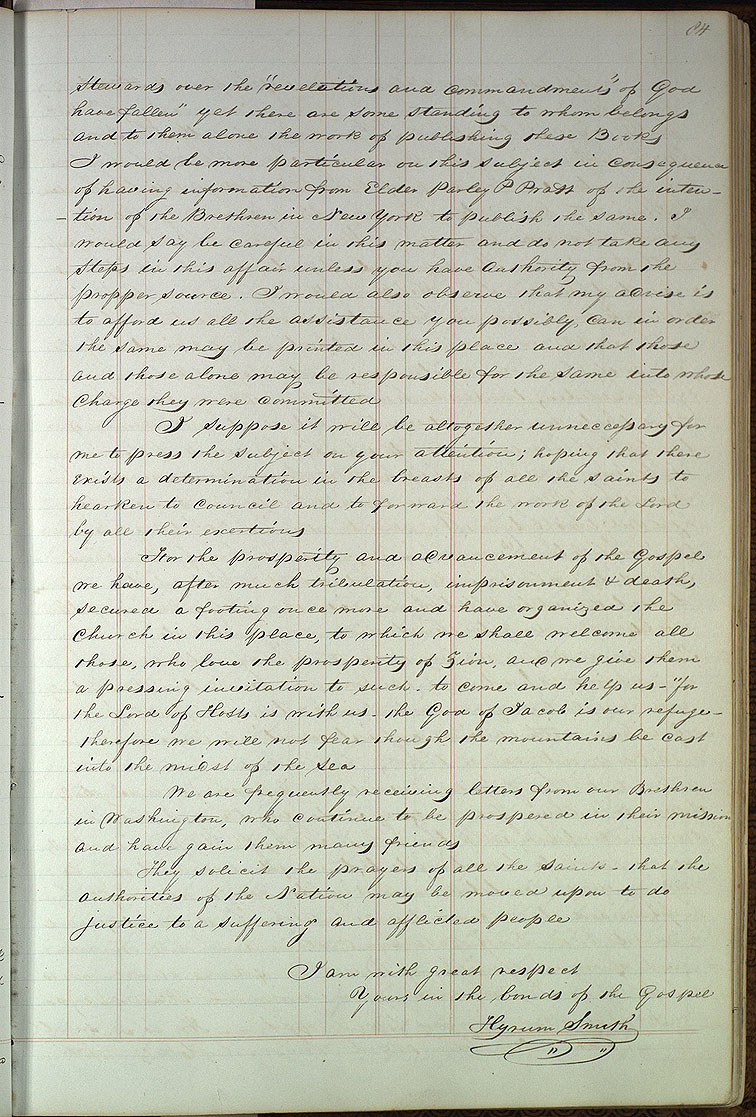 84
Stewards over the "revelations and commandments" of God
have fallen" yet there are some standing to whom belongs
and to them alone the work of publishing these Books
I would be more particular on this subject in consequence
of having information from Elder Parley P Pratt of the inten-
-tion of the Brethren in New York to publish the same. I
would say be careful in this matter and do not take any
steps in this affair unless you have authority from the
propper source. I would also observe that my advise is
to afford us all the assistance you possibly can in order
the same may be printed in this place and that those
and those alone may be responsible for the same into whose
charge they were committed
I suppose it will be altogether unneccessary for
me to press the subject on your attention; hoping that there
exists a determination in the breasts of all the saints to
hearken to council and to forward the work of the Lord
by all their exertions
For the prosperity and advancement of the Gospel
we have, after much tribulation, imprisonment & death,
secured a footing once more and have organized the
Church in this place, to which we shall welcome all
those, who love the prosperity of Zion, and we give them
a pressing invitation to such. to come and help us - "for
the Lord of Hosts is with us - the God of Jacob is our refuge -
therefore we will not fear though the mountains be cast
into the midst of the sea
We are frequently receiving letters from our Brethren
in Washington, who continue to be prospered in their mission
and have gain them many friends
They solicit the prayers of all the saints - that the
authorities of the Nation may be moved upon to do
justice to a suffering and afflicted people
I am with great respect
Yours in the bonds of the Gospel
Hyrum Smith